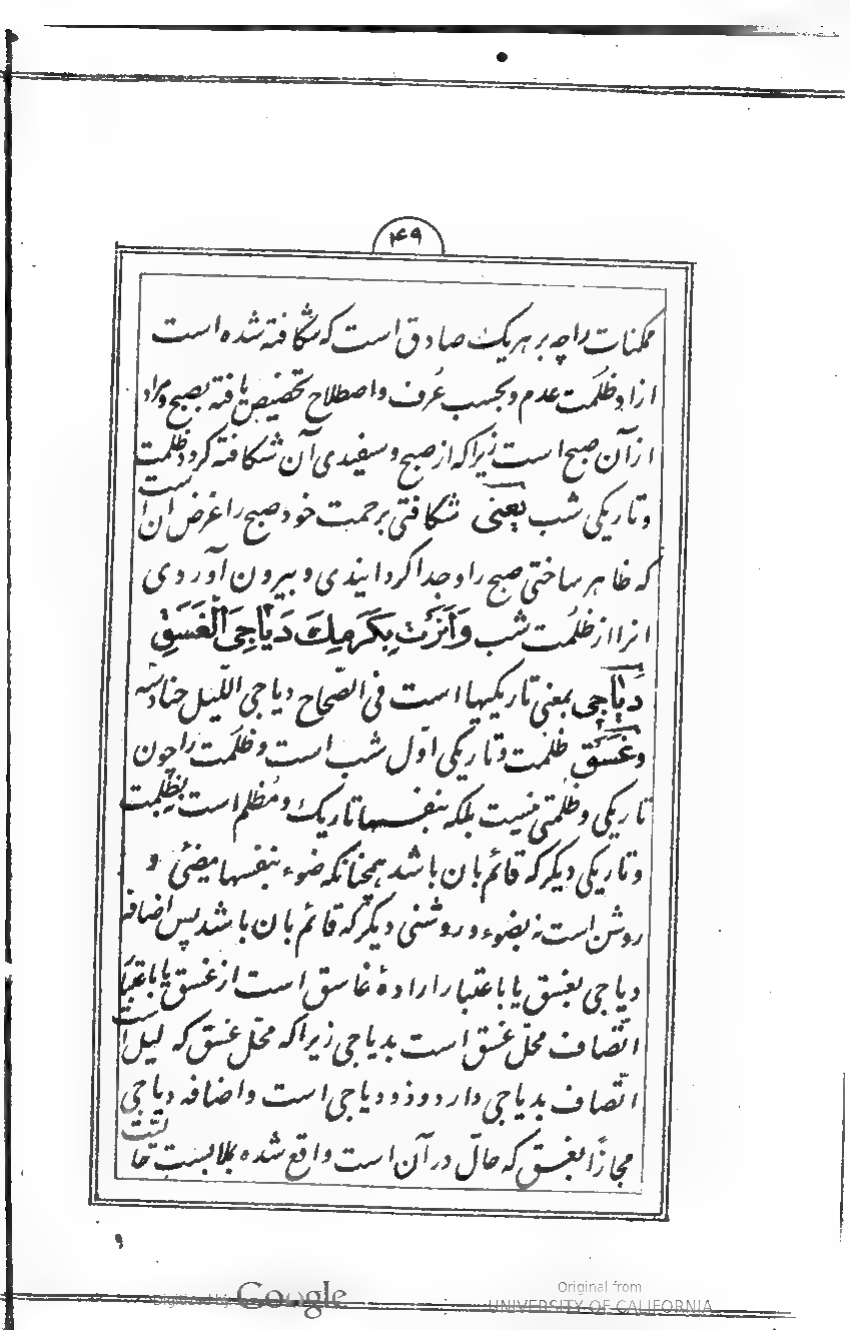 ۴۹
ممکنات راچه بر هریک صادق است که شکافته شده است
ازاو ظلمت عدم و بحسب عرف واصطلاح تخصیص یافته بصبح ومراد
ازآن صبح است زیراکه از صبح و سفیدی آن شکافته کردد ظلمت
وتاریکی شب یعنی شکافتی برحمت خود صبح را غرض ان است
که ظاهر ساختی صبح را وجدا کردانیدی و بیرون آوردی
انرا از ظلمت شب وَاَنَرْتَ بِکَرَمِكَ دَیاجِیَ الْغَسَقِ
دیاجی بمعنی تاریکیها است فی الصّحاح دیاجی اللّیل حنادسه
وغسق ظلمت وتاریکی اوّل شب است وظلمت راچون
تاریکی وظلمتی نیست بلکه بنفسها تاریك ومظلم است نه بظلمت
وتاریکی دیکر که قائم بان باشد همچنانکه ضوء بنفسها مضئ و
روشن است نه بضوء و روشنی دیکر که قائم بان باشد پس اضافه
دیاجی بغسق یا باعتبار ارادهٔ غاسق است از غسق یا باعتبار
اتّصاف محلّ غسق است بدیاجی زیراکه محلّ غسق که لیل است
اتّصاف بدیاجی دارد وذو دیاجی است واضافه دیاجی
مجازًا بغسق که حالّ در آن است واقع شده بملابست حالیّت
۹
Digitized by Google
Original from
UNIVERSITY OF CALIFORNIA